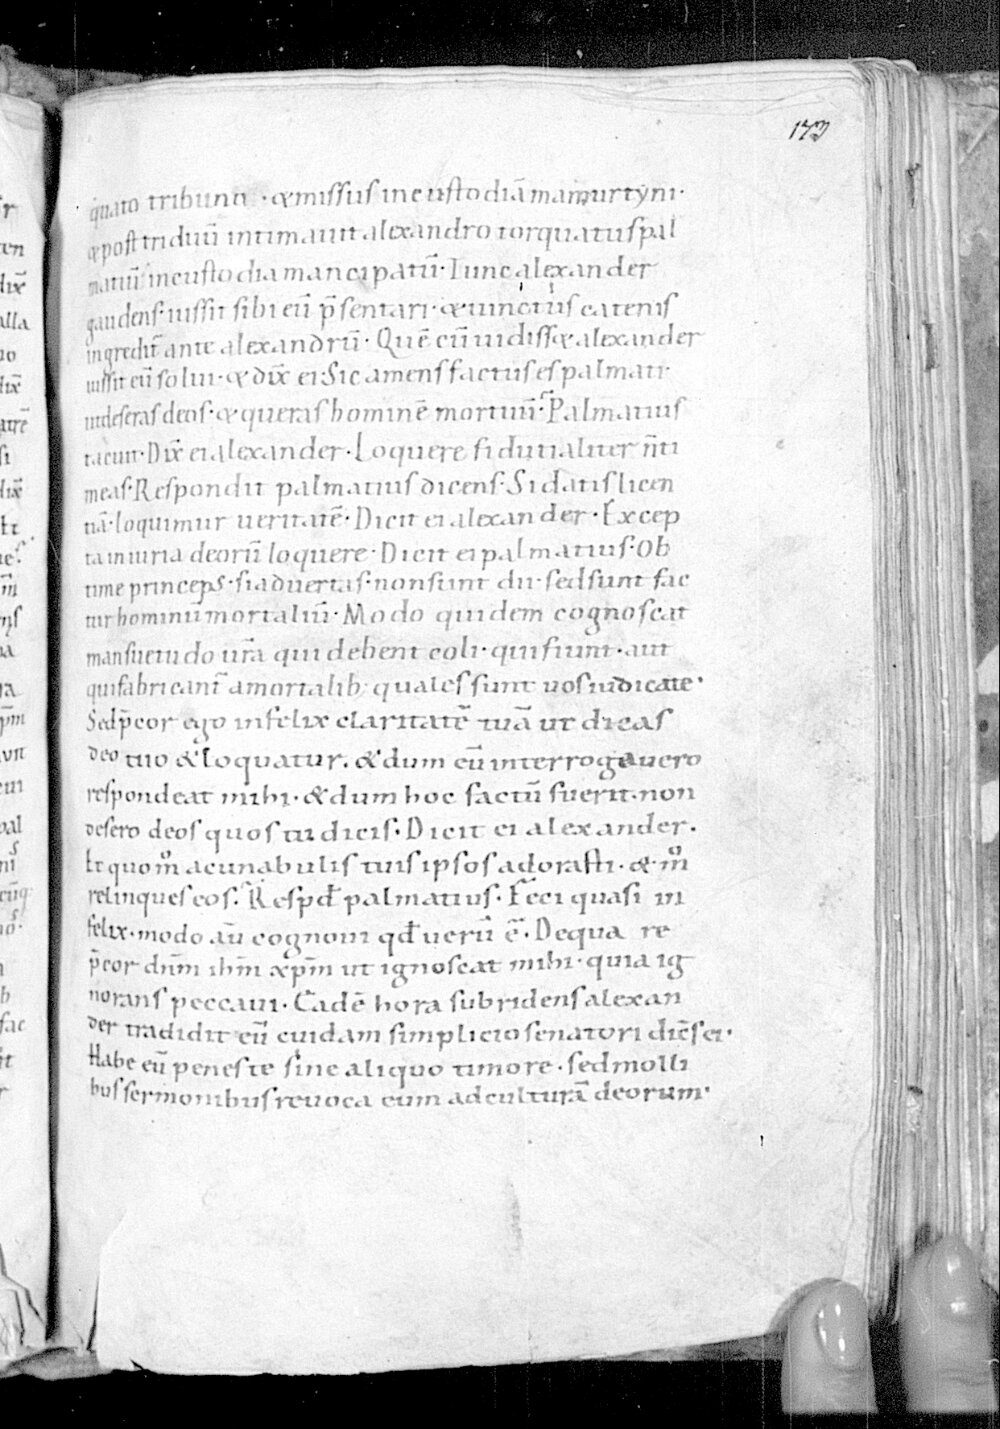 173
quato tribuno · & missus incustodiā mamurtyni ·
& post triduū intimauit alexandro torquatus pal
matiū incustodia mancipatū · Tunc alexander
gaudens · iussit sibi eū p̄sentari · & uinctus catenis
ingredit̄ ante alexandrū · Quē cū uidiss& alexander
iussit eū solui · & dix̄ ei · Sic amens factus es palmati ·
ut deseras deos · & queras hominē mortuū · Palmatius
tacuit · Dix̄ ei alexander · Loquere si du tialiter n̄ ti
meas · Respondit palmatius dicens · Si datis licen
tiā · loquimur ueritatē · Dicit ei alexander · Excep
ta iniuria deorū loquere · Dicit ei palmatius · Ob
time princeps · si aduertas · non sunt dii · sed sunt fac
tur hominū mortaliū · Modo quidem cognoscat
mansuetudo ur̄a qui debent coli · qui fiunt · aut
qui fabricant̄ a mortalib; quales sunt uos iudicate ·
Sed p̄cor ego infelix claritatē tuā ut dicas
deo tuo & loquatur · & dum eū interrogauero
respondeat mihi · & dum hoc factū fuerit · non
desero deos quos tu dicis · Dicit ei alexander ·
Et quom̊ acunabulis tuis ipsos adorasti · & m̊
relinques eos · Resp̄d palmatius · Feci quasi in
felix · modo aū cognoui qđ uerū ē · De qua re
p̄cor dn̄m ihm̄ xp̄m ut ignoscat mihi · quia ig
norans peccaui · Eadē hora subridens alexan
der tradidit eū cuidam simplicio senatori dicēs ei ·
Habe eū penes te sine aliquo timore · sed molli
bus sermonibus reuoca eum ad culturā deorum ·